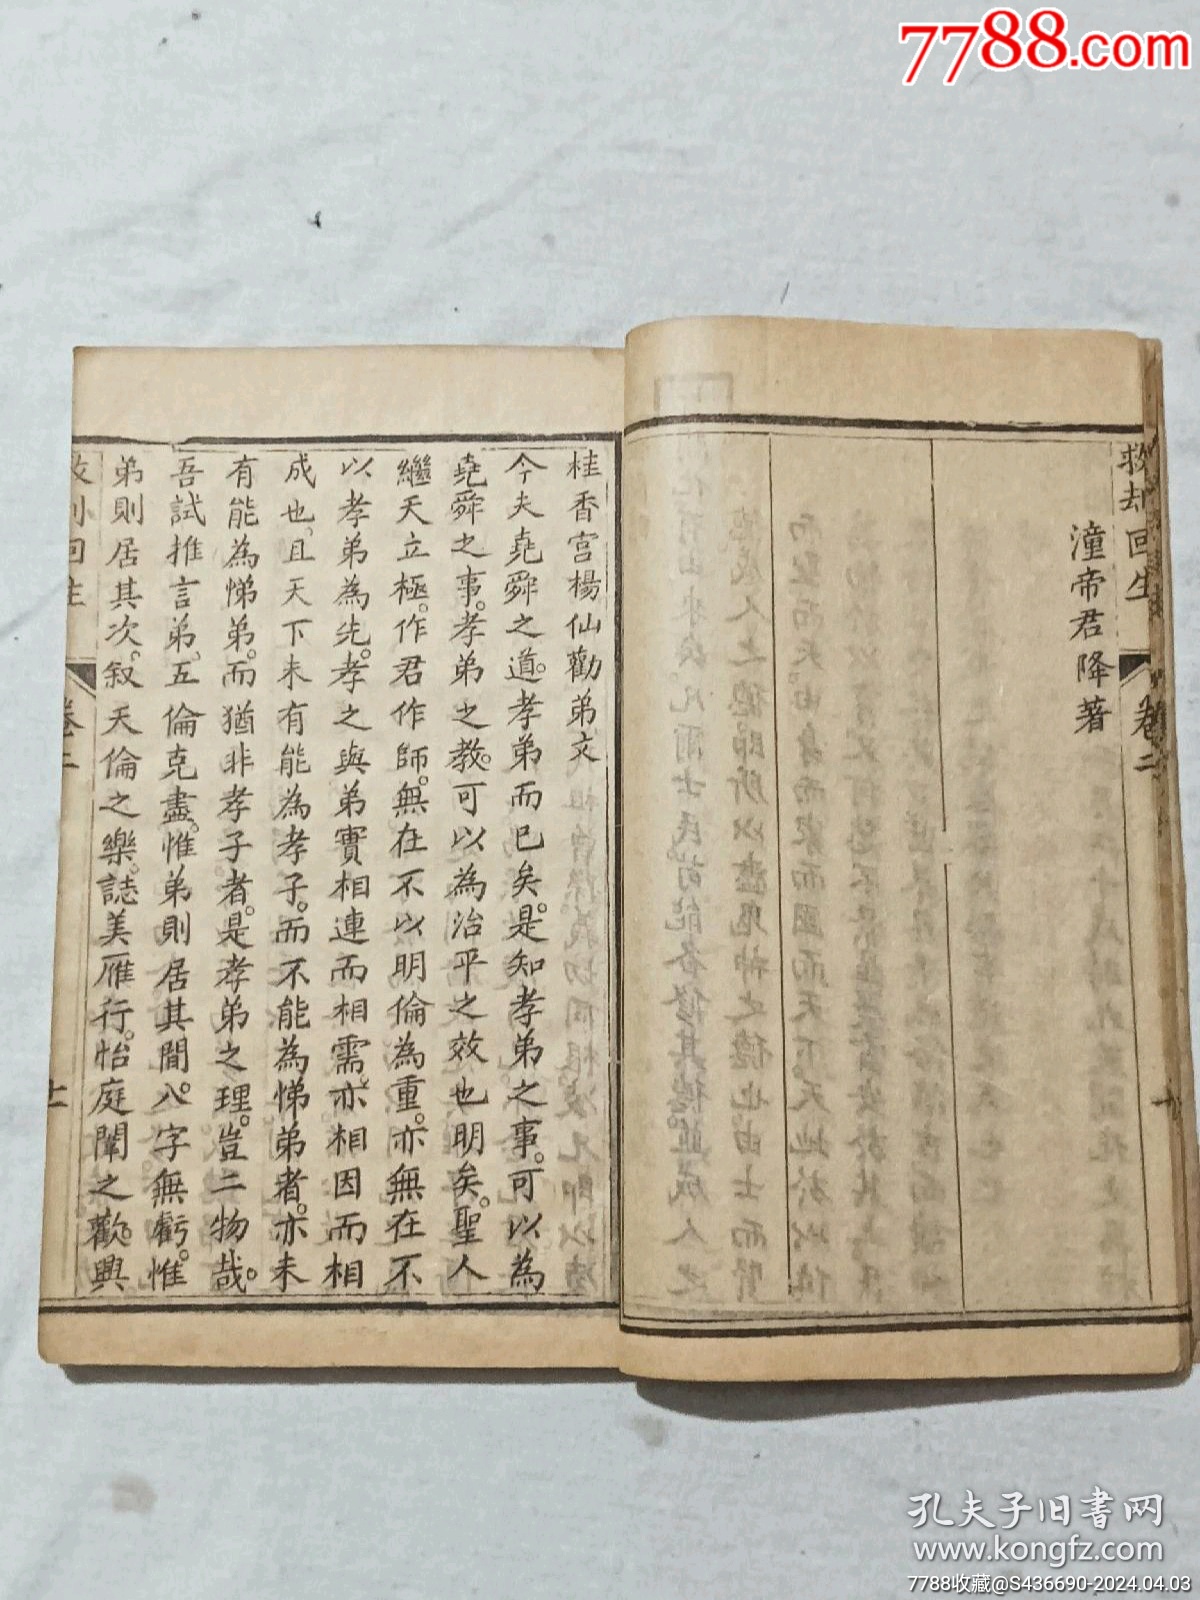 7788.com
救劫回生
卷二
十
潼帝君降著
桂香宮楊仙勸弟文
今夫堯舜之道。孝弟而已矣。是知孝弟之事。可以為
堯舜之事。孝弟之教。可以為治平之效也明矣。聖人
繼天立極。作君作師。無在不以明倫為重。亦無在不
以孝弟為先。孝之與弟實相連而相需。亦相因而相
成也。且天下未有能為孝子。而不能為悌弟者。亦未
有能為悌弟。而猶非孝子者。是孝弟之理。豈二物哉。
吾試推言弟。五倫克盡。惟弟則居其間。八字無虧。惟
弟則居其次。叙天倫之樂。誌美雁行。怡庭闈之歡。興
回生
卷二
十
孔夫子旧书网
www.kongfz.com
7788收藏@S436690-2024.04.03